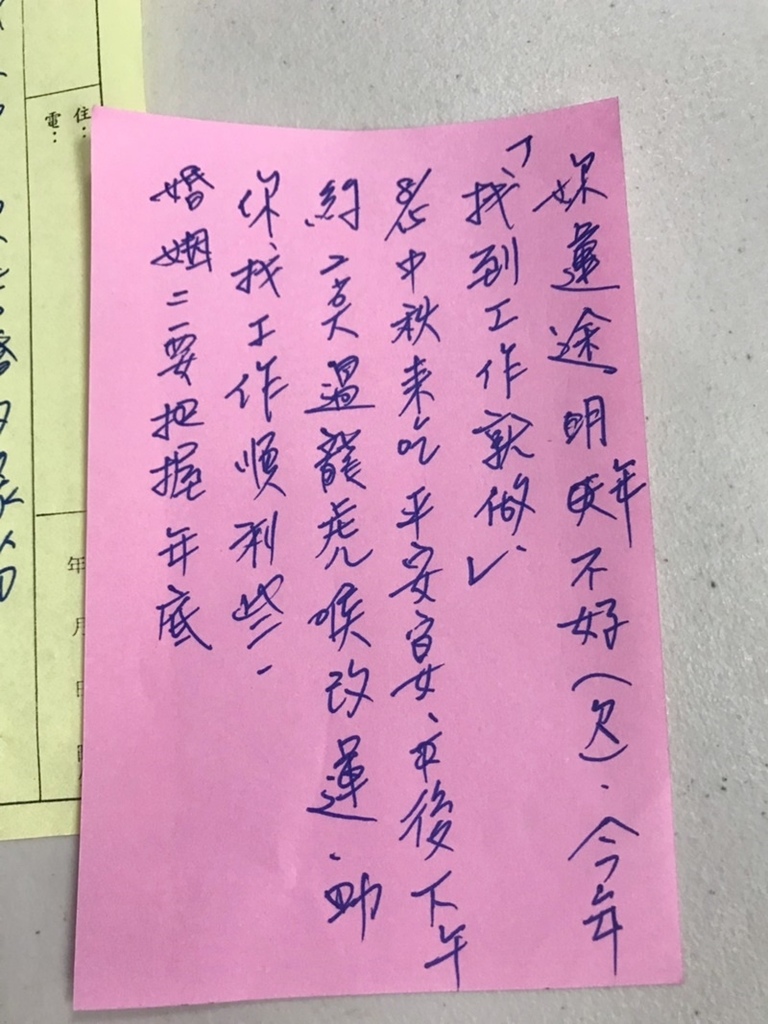 妳運途明年不好(欠)、今年
「找到工作就做」、
中秋來吃平安宴、午後下午
約 過龍虎喉改運、助
你找工作順利些、
婚姻二要把握年底
住：
電：
年
月